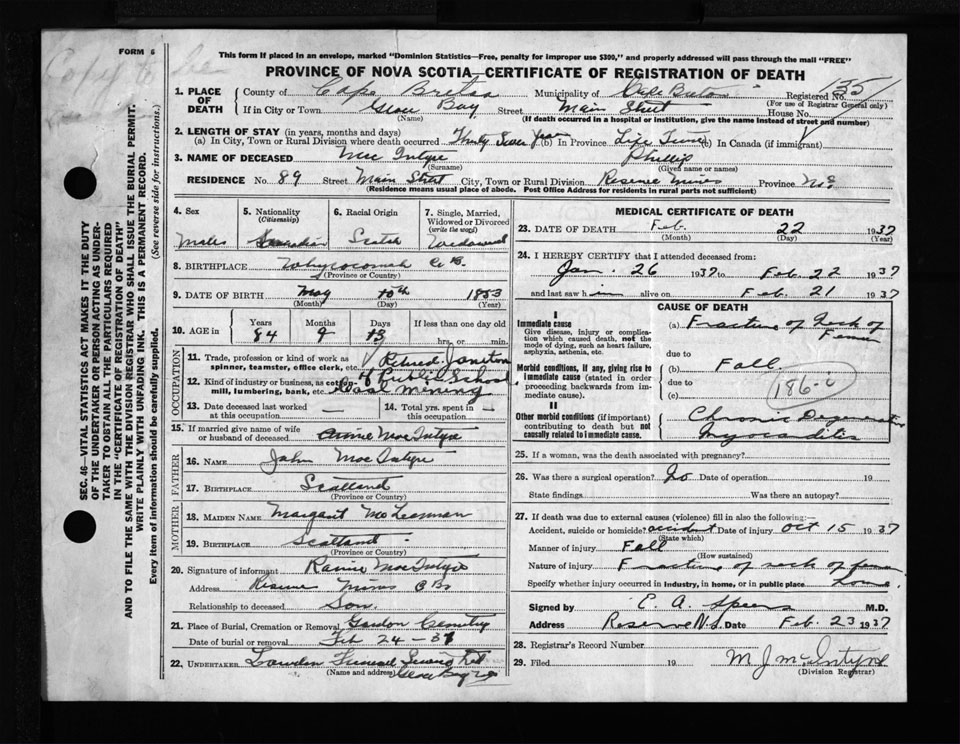 FORM 6
This form If placed in an envelope, marked "Dominion Statistics—Free, penalty for improper use $300," and properly addressed will pass through the mail "FREE"
PROVINCE OF NOVA SCOTIA—CERTIFICATE OF REGISTRATION OF DEATH
SEC. 46—VITAL STATISTICS ACT MAKES IT THE DUTY
OF THE UNDERTAKER OR PERSON ACTING AS UNDER-
TAKER TO OBTAIN ALL THE PARTICULARS REQUIRED
IN THE "CERTIFICATE OF REGISTRATION OF DEATH"
AND TO FILE THE SAME WITH THE DIVISION REGISTRAR WHO SHALL ISSUE THE BURIAL PERMIT.
WRITE PLAINLY WITH UNFADING INK. THIS IS A PERMANENT RECORD.
Every item of information should be carefully supplied. (See reverse side for instructions.)
1. PLACE OF DEATH County of Cape Breton Municipality of Cape Breton Registered No. 135
(For use of Registrar General only)
If in City or Town Glace Bay Street Main Street House No.
(Name) (If death occurred in a hospital or institution, give the name instead of street and number)
2. LENGTH OF STAY (in years, months and days)
(a) In City, Town or Rural Division where death occurred Thirty Seven years (b) In Province Life Time (c) In Canada (if immigrant)
3. NAME OF DECEASED Mac Intyre Phillip
(Surname) (Given name or names)
RESIDENCE No. 89 Street Main Street City, Town or Rural Division Reserve Mines Province NS
(Residence means usual place of abode. Post Office Address for residents in rural parts not sufficient)
4. Sex 5. Nationality (Citizenship) 6. Racial Origin 7. Single, Married, Widowed or Divorced (write the word)
Male Canadian Scotch Widowed
8. BIRTHPLACE Whycocomah C.B.
(Province or Country)
9. DATE OF BIRTH May 10th 1853
(Month) (Day) (Year)
10. AGE in Years Months Days If less than one day
84 9 13 hrs. or min.
OCCUPATION
11. Trade, profession or kind of work as spinner, teamster, office clerk, etc. Retired Janitor
12. Kind of industry or business, as cotton-mill, lumbering, bank, etc. of Public School Coal Mining
13. Date deceased last worked at this occupation —
14. Total yrs. spent in this occupation —
15. If married give name of wife or husband of deceased Annie MacIntyre
FATHER
16. Name John MacIntyre
17. Birthplace Scotland
(Province or Country)
MOTHER
18. Maiden Name Margaret
19. Birthplace Scotland
(Province or Country)
20. Signature of informant MacIntyre
Address Reserve Mines C B
Relationship to deceased Son.
21. Place of Burial, Cremation or Removal Cemetry
Date of burial or removal Feb 24 - 37
22. UNDERTAKER Funeral
(Name and address) Glace Bay
MEDICAL CERTIFICATE OF DEATH
23. DATE OF DEATH Feb. 22 1937
(Month) (Day) (Year)
24. I HEREBY CERTIFY that I attended deceased from:
Jan. 26 1937 to Feb. 22 1937
and last saw him alive on Feb. 21 1937
CAUSE OF DEATH
I
Immediate cause
Give disease, injury or complication which caused death, not the mode of dying, such as heart failure, asphyxia, asthenia, etc.
(a) Fracture of Neck of Femur
due to
Morbid conditions, if any, giving rise to immediate cause (stated in order proceeding backwards from immediate cause).
(b) Fall.
due to
(c)
186-
II
Other morbid conditions (if important) contributing to death but not causally related to immediate cause.
Chronic Degenerative
Myocarditis
25. If a woman, was the death associated with pregnancy?
26. Was there a surgical operation? No Date of operation 19
State findings Was there an autopsy?
27. If death was due to external causes (violence) fill in also the following:—
Accident, suicide or homicide? accident Date of injury Oct 15 1937
(State which)
Manner of injury Fall
(How sustained)
Nature of injury Fracture of neck of femur
Specify whether injury occurred in industry, in home, or in public place home.
Signed by E. A. Speers M.D.
Address Reserve N.S. Date Feb. 23 1937
28. Registrar's Record Number
29. Filed 19 M J McIntyre
(Division Registrar)